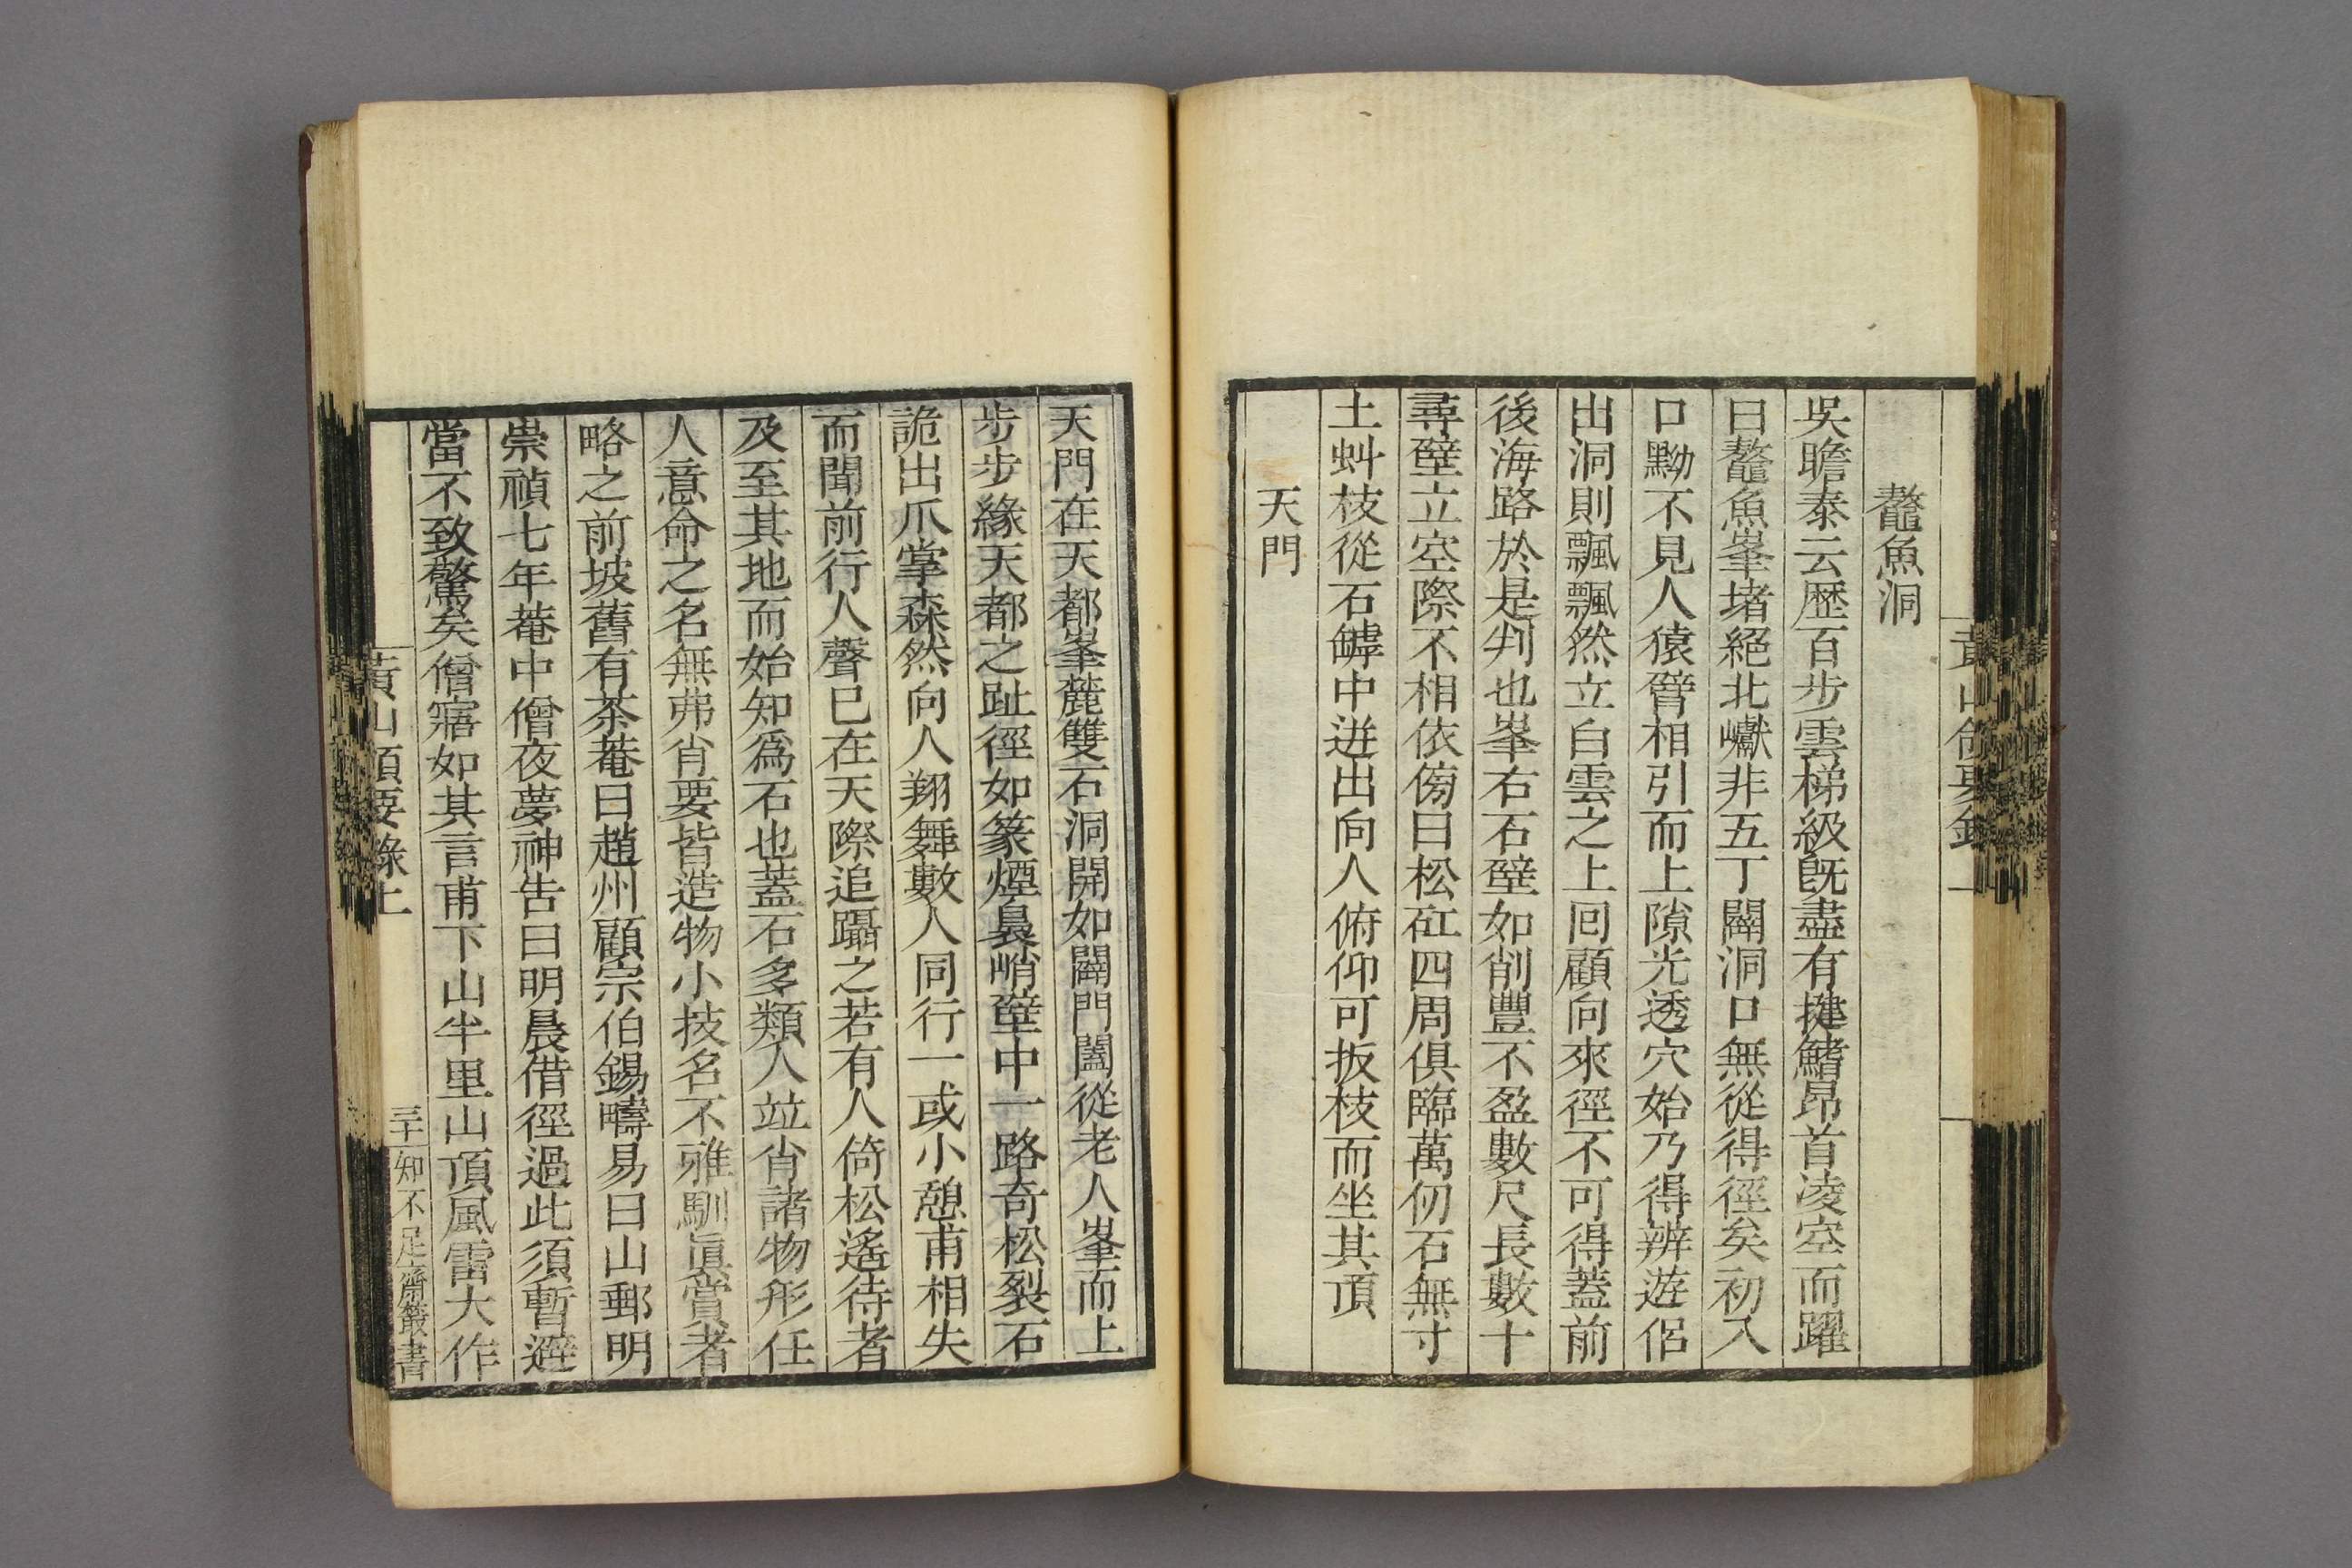 鼇魚洞
吳瞻泰云歷百步雲梯級旣盡有揵鰭昂首凌空而躍
曰鼇魚峯堵絕北巘非五丁闢洞口無從得徑矣初入
口黝不見人猿臂相引而上隙光透穴始乃得辨遊侶
出洞則飄飄然立白雲之上囘顧向來徑不可得蓋前
後海路於是判也峯右石壁如削豐不盈數尺長數十
尋壁立空際不相依傍曰松矼四周俱臨萬仞石無寸
土虯枝從石罅中迸出向人俯仰可扳枝而坐其頂
天門
天門在天都峯麓雙石洞開如闢門闔從老人峯而上
步步緣天都之趾徑如篆煙裊峭壁中一路奇松裂石
詭出爪掌森然向人翔舞數人同行一或小憩甫相失
而聞前行人聲已在天際追躡之若有人倚松遙待者
及至其地而始知爲石也蓋石多類人竝肖諸物形任
人意命之名無弗肖要皆造物小技名不雅馴眞賞者
略之前坡舊有茶菴曰趙州顧宗伯錫疇易曰山郵明
崇禎七年菴中僧夜夢神告曰明晨借徑過此須暫避
當不致驚矣僧寤如其言甫下山半里山頂風雷大作
黃山領要錄上
三十
知不足齋叢書